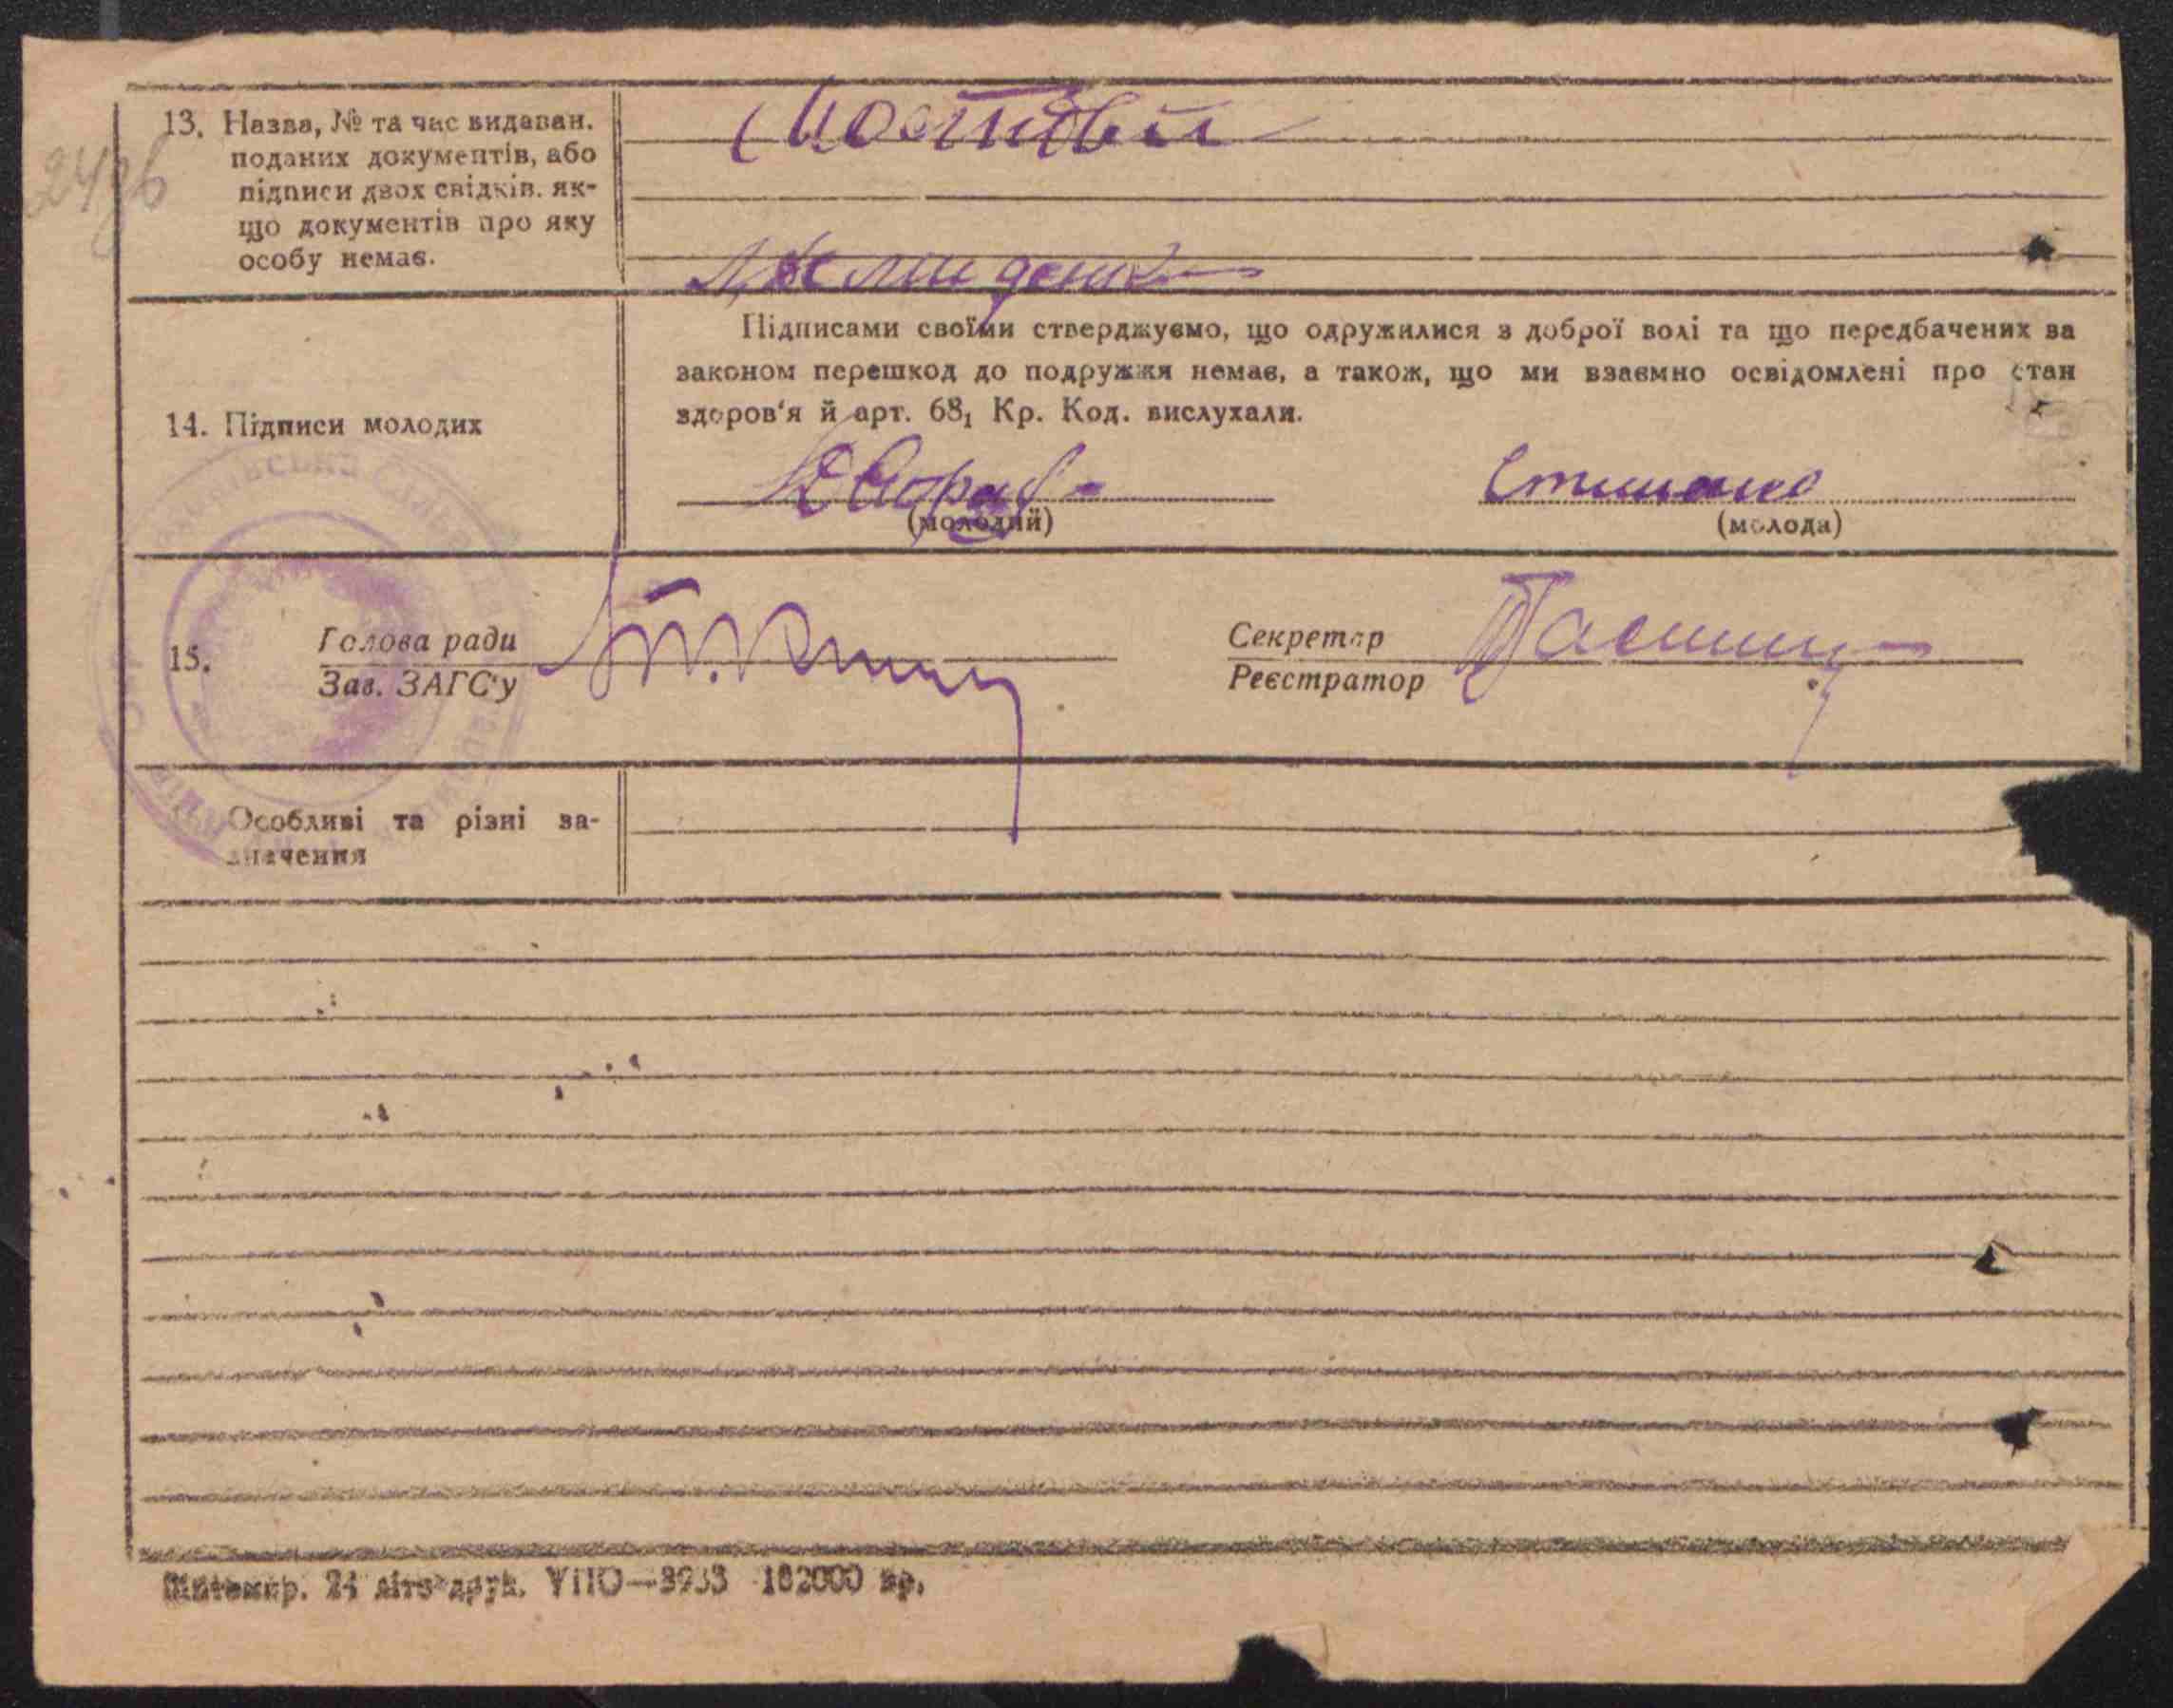 13. Назва, № та час видаван.
поданих документів, або
підписи двох свідків. як-
що документів про яку
особу немає.
Мостовий
24зв
Підписами своїми стверджуємо, що одружилися з доброї волі та що передбачених за
законом перешкод до подружжя немає, а також, що ми взаємно освідомлені про стан
здоров'я й арт. 68₁ Кр. Код. вислухали.
14. Підписи молодих
(молодий)
(молода)
15.
Голова ради
Зав. ЗАГС'у
Секретар
Реєстратор
Особливі та різні за-
значення
Житомир. 24 літо-друк. УПО—3933 162000 пр.